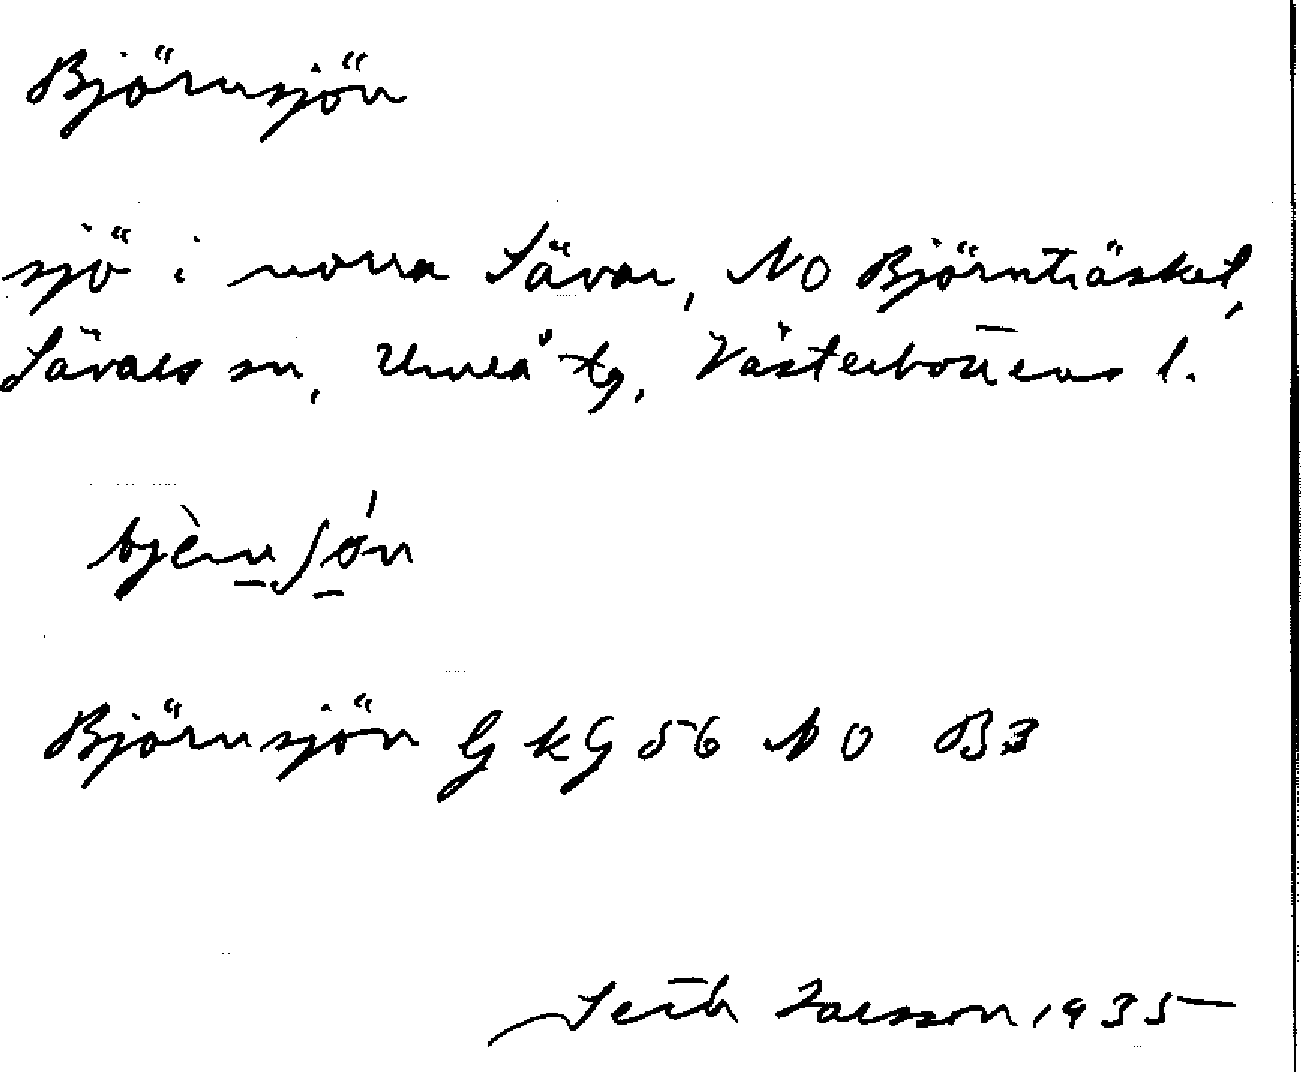 Björnsjön
sjö i norra Sävar, NO Björnträsket,
Sävars sn, Umeå tg, Västerbottens l.
bjè̀rnʃǿn
Björnsjön G k G 56 NO B3
Seth Larsson 1935